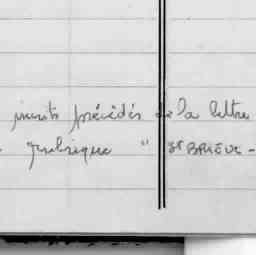 inscrits précédés de la lettre
rubrique " St BRIEUC -